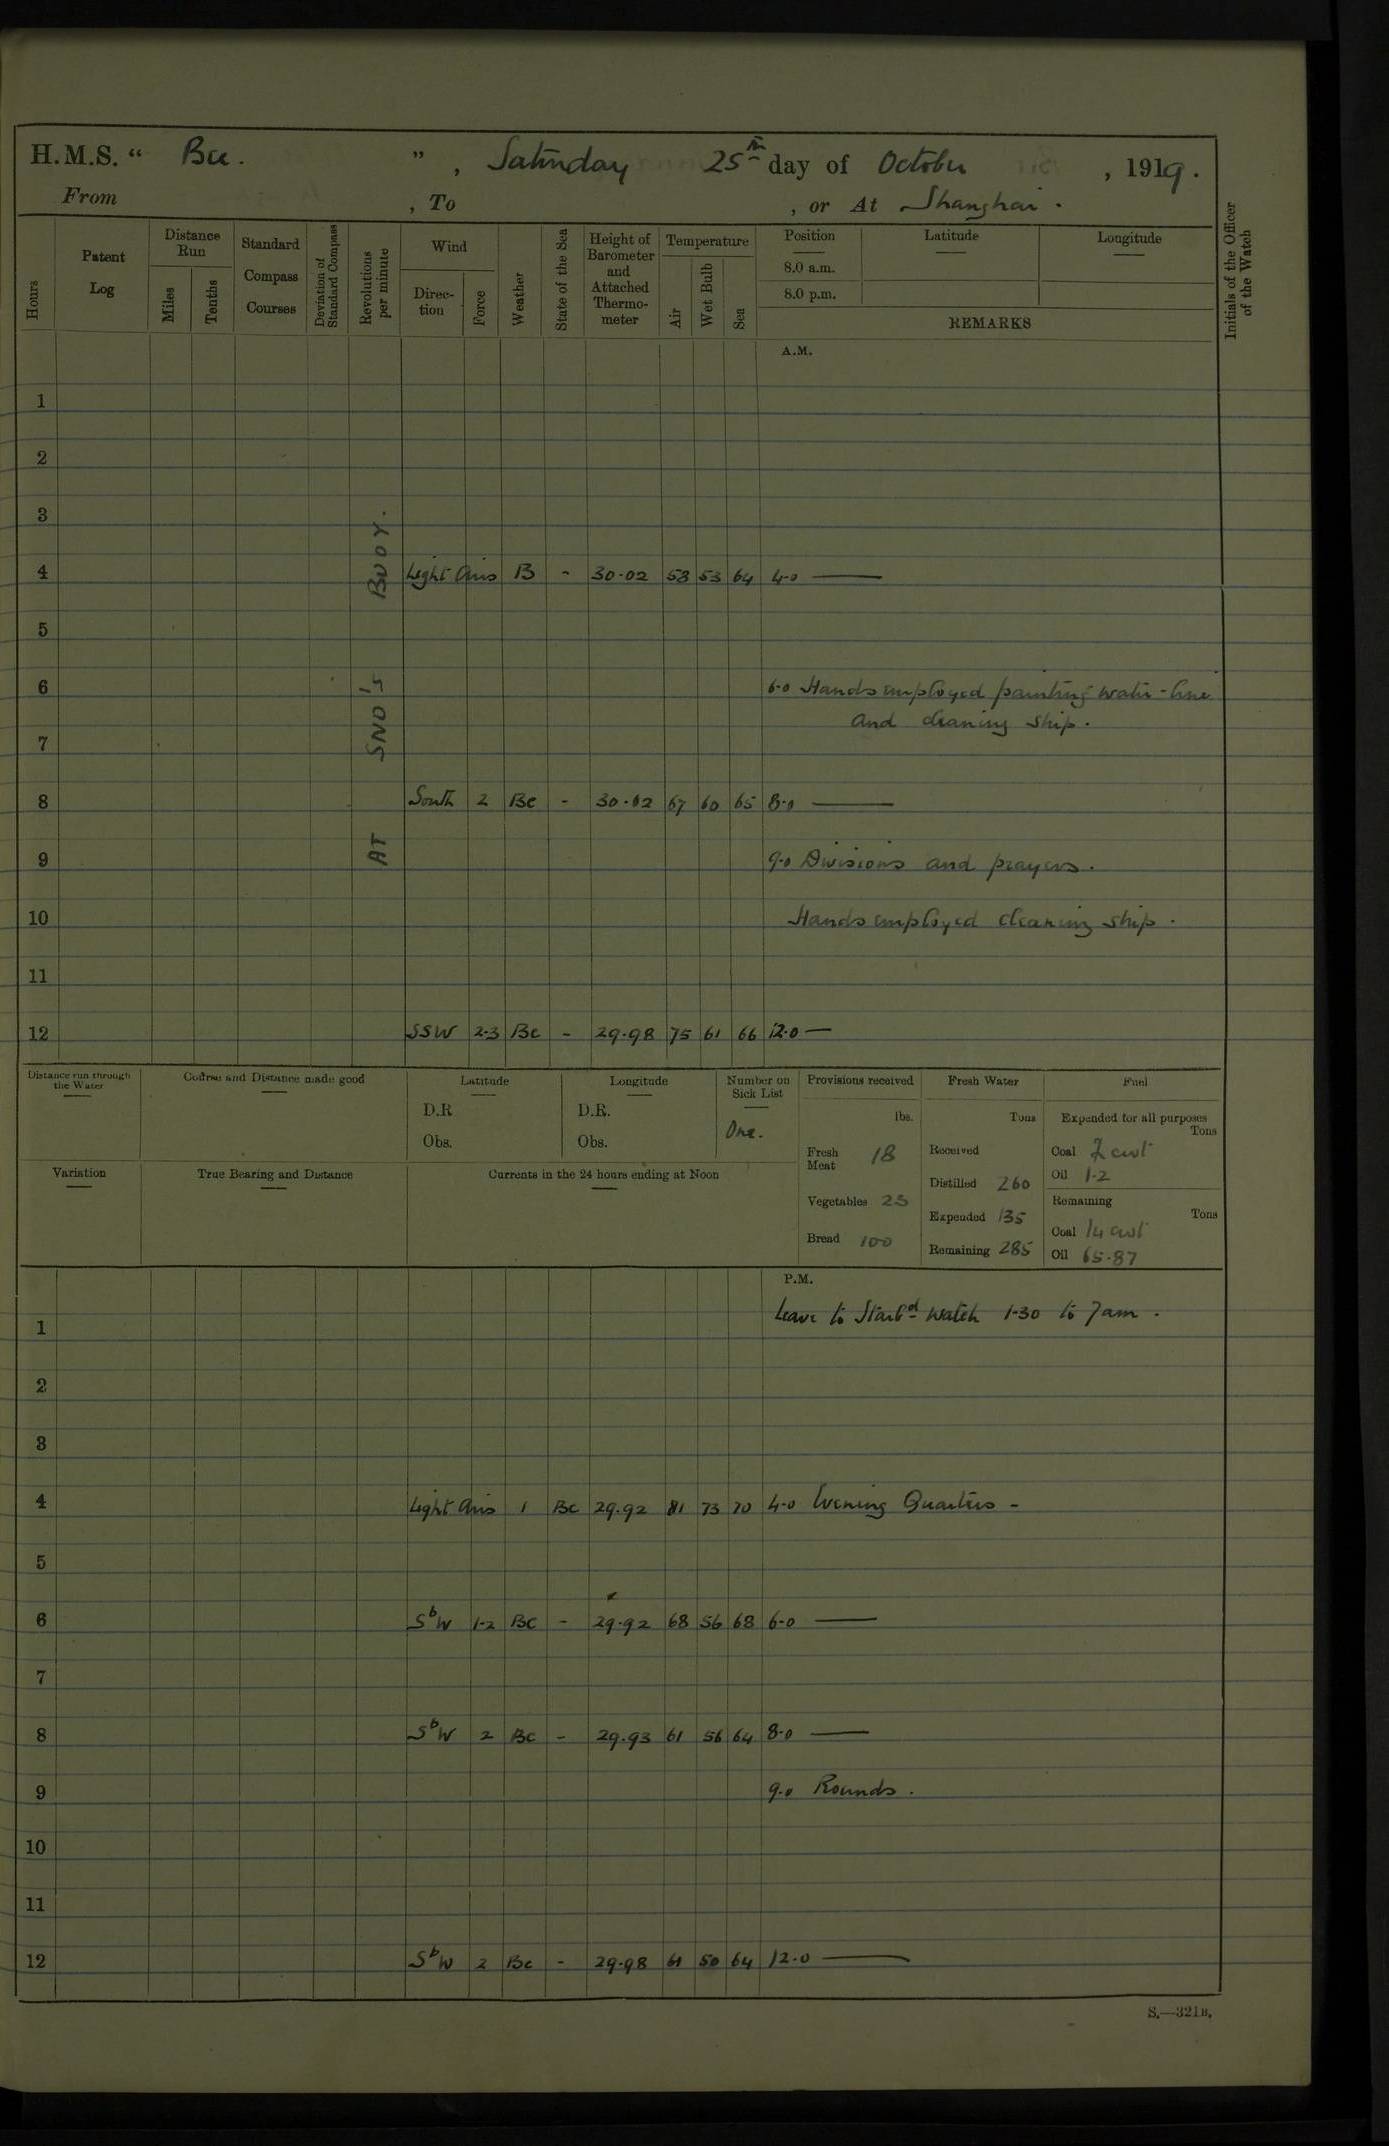 H.M.S. “ Bee. ” , Saturday 25th day of October , 1919.
From , To , or At Shanghai .
Hours
Patent Log
Distance Run
Miles
Tenths
Standard Compass Courses
Deviation of Standard Compass
Revolutions per minute
Wind
Direction
Force
Weather
State of the Sea
Height of Barometer and Attached Thermometer
Temperature
Air
Wet Bulb
Sea
Position
8.0 a.m.
8.0 p.m.
Latitude
Longitude
REMARKS
Initials of the Officer of the Watch
A.M.
AT SNO's BUOY.
1
2
3
4 Light Airs B - 30.02 58 53 64 4.0 —
5
6 6.0 Hands employed painting water-line
and cleaning ship.
7
8 South 2 Bc - 30.02 67 60 65 8.0 —
9 9.0 Divisions and prayers.
10 Hands employed cleaning ship.
11
12 SSW 2-3 Bc - 29.98 75 61 66 12.0 —
Distance run through the Water
Course and Distance made good
Latitude
D.R
Obs.
Longitude
D.R.
Obs.
Number on Sick List
One.
Variation
True Bearing and Distance
Currents in the 24 hours ending at Noon
Provisions received
lbs.
Fresh Meat 18
Vegetables 25
Bread 100
Fresh Water
Tons
Received
Distilled 260
Expended 135
Remaining 285
Fuel
Expended for all purposes
Tons
Coal 2 cwt
Oil 1.2
Remaining
Tons
Coal 14 cwt
Oil 65.87
P.M.
1 Leave to Starbd Watch 1-30 to 7am.
2
3
4 Light Airs 1 Bc 29.92 81 73 70 4.0 Evening Quarters -
5
6 SbW 1-2 Bc - 29.92 68 56 68 6.0 —
7
8 SbW 2 Bc - 29.93 61 56 64 8.0 —
9 9.0 Rounds.
10
11
12 SbW 2 Bc - 29.98 61 50 64 12.0 —
S.—321B.